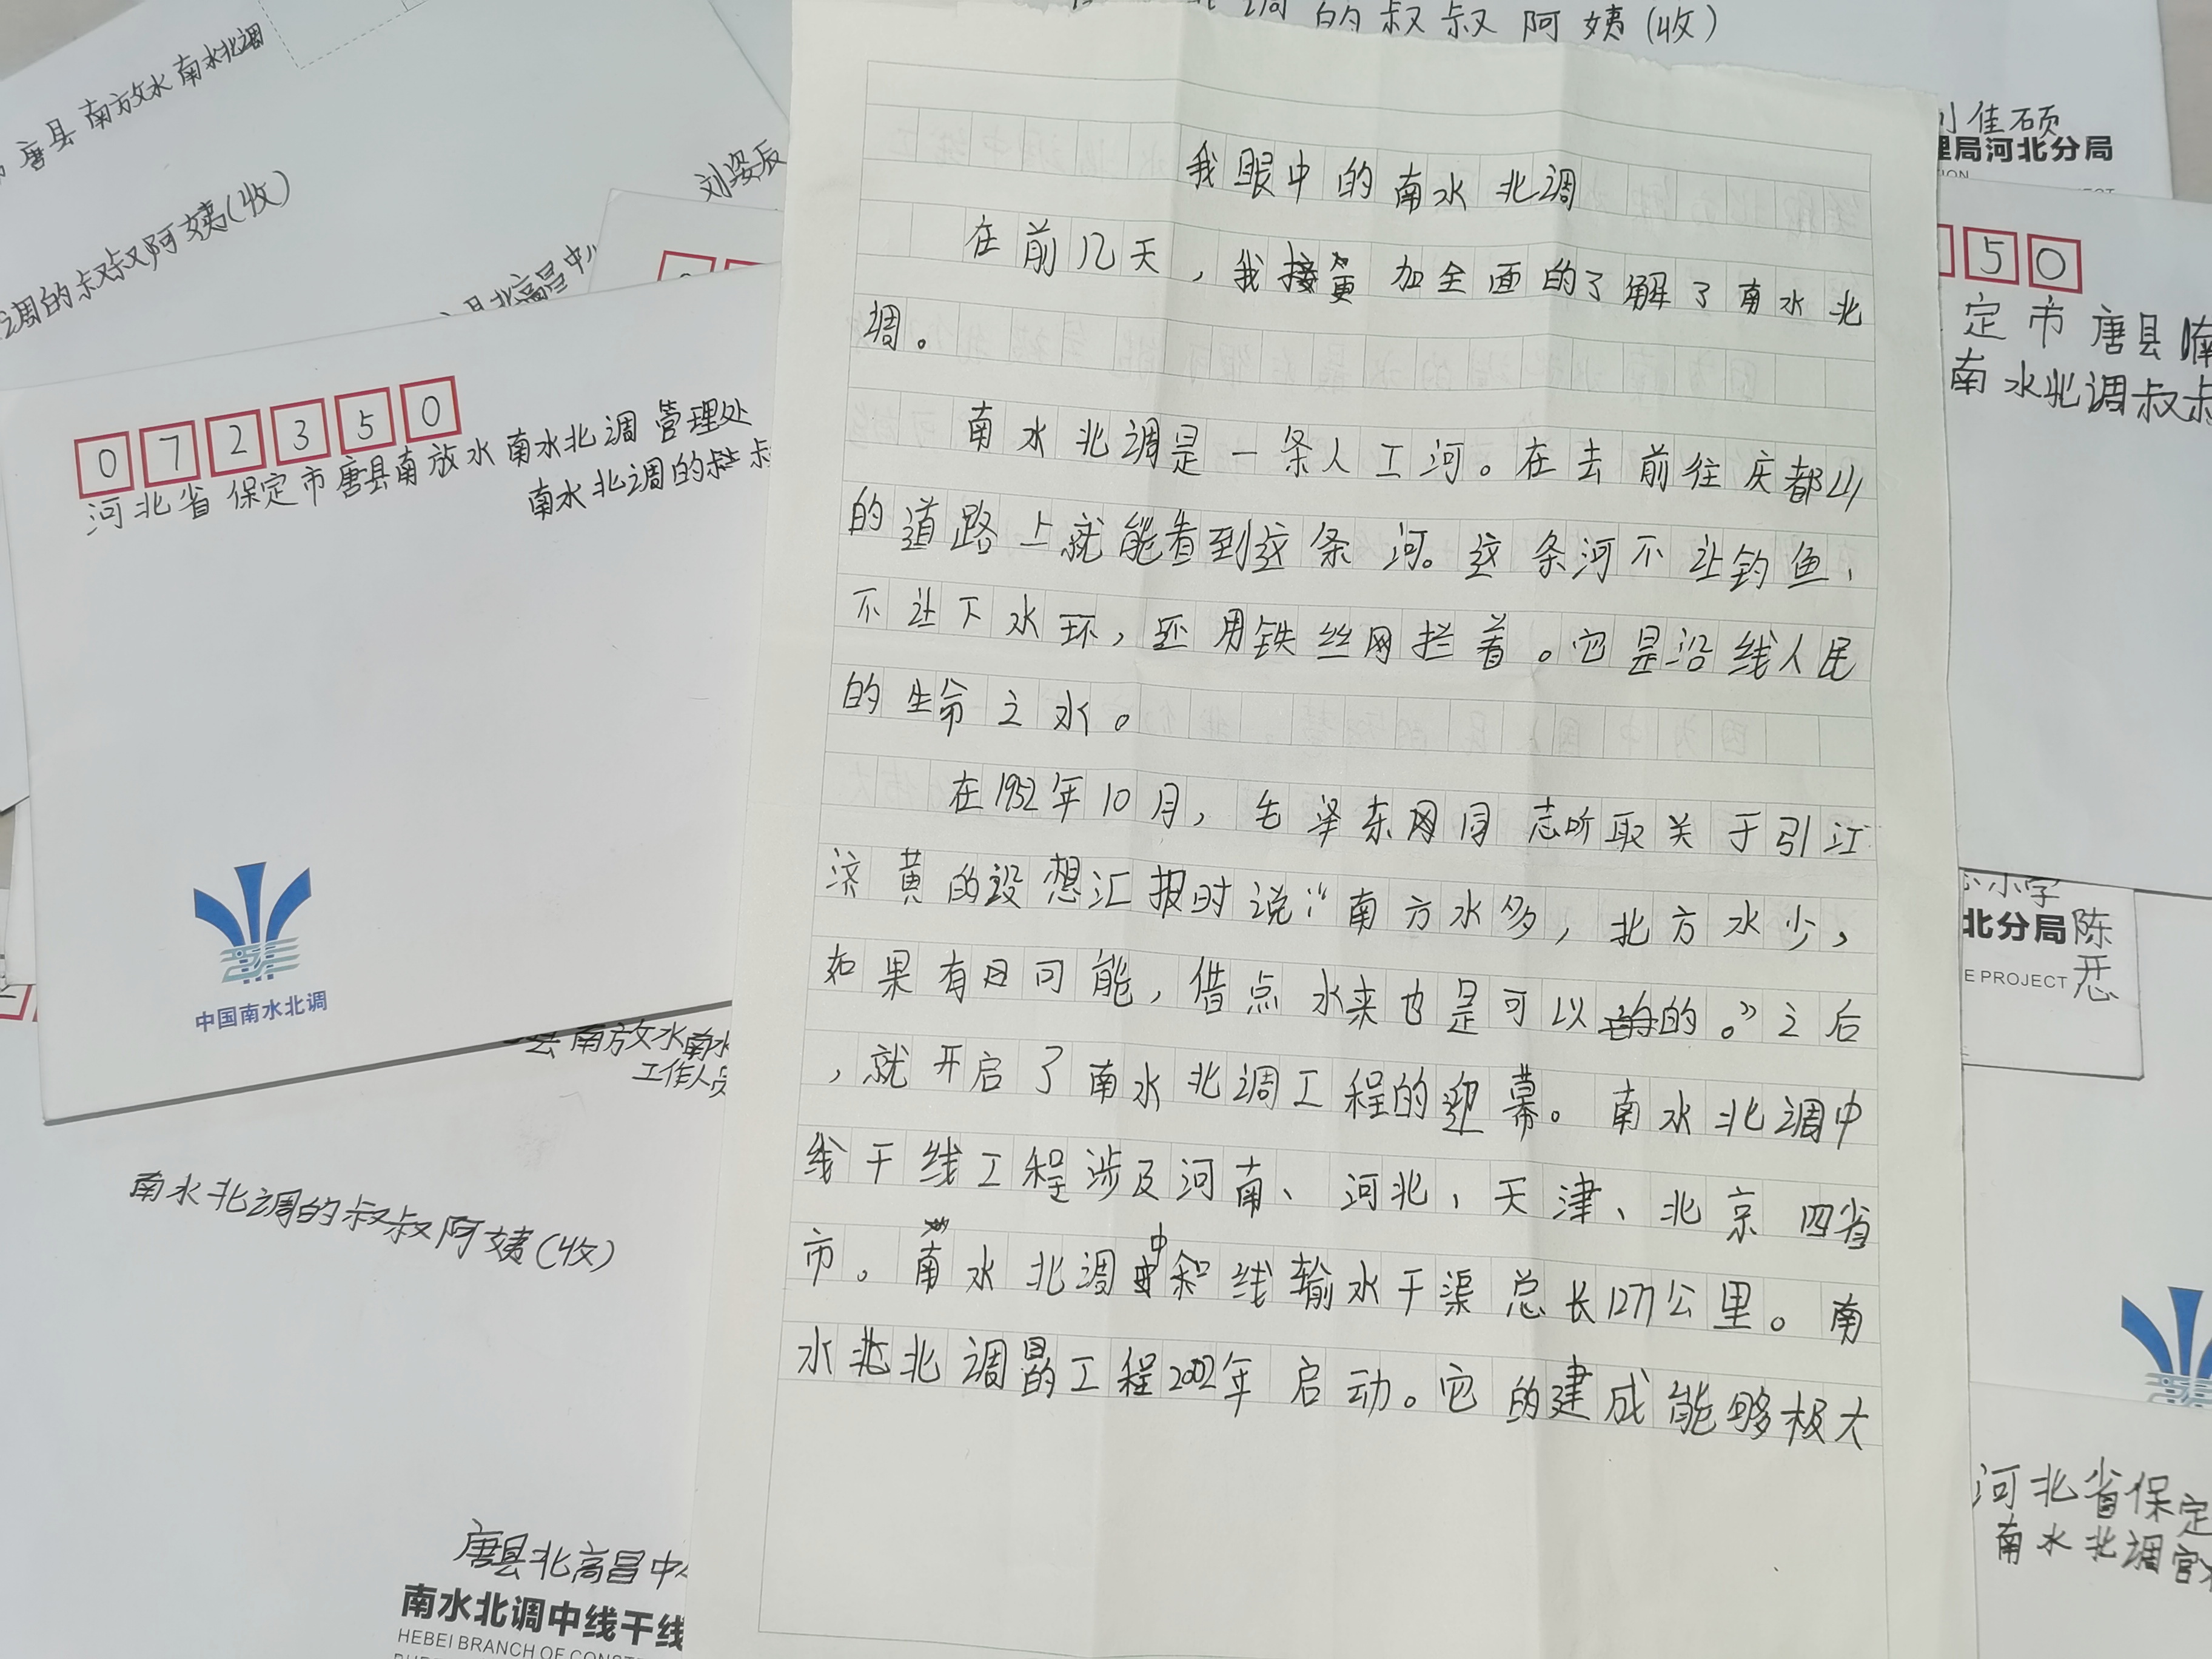 的叔叔阿姨(收)
唐县南放水南水北调
调的叔叔阿姨(收)
刘姿辰
县北高昌中心
072350
河北省保定市唐县南放水南水北调管理处
南水北调的叔叔
中国南水北调
去南放水南水
工作人员
南水北调的叔叔阿姨(收)
唐县北高昌中心
南水北调中线干线
HEBEI BRANCH OF CONST
我眼中的南水北调
在前几天，我更加全面的了解了南水北
调。
南水北调是一条人工河。在去前往庆都山
的道路上就能看到这条河。这条河不让钓鱼、
不让下水环，还用铁丝网拦着。它是沿线人民
的生命之水。
在1952年10月，毛泽东同志听取关于引江
济黄的设想汇报时说：“南方水多，北方水少，
如果有可能，借点水来也是可以的。”之后
，就开启了南水北调工程的迎幕。南水北调中
线干线工程涉及河南、河北、天津、北京四省
市。南水北调中线输水干渠总长1277公里。南
水北调的工程2002年启动。它的建成能够极大
刘佳硕
理局河北分局
50
定市唐县南
南水北调叔叔
小学
北分局 陈
E PROJECT
河北省保定
南水北调管